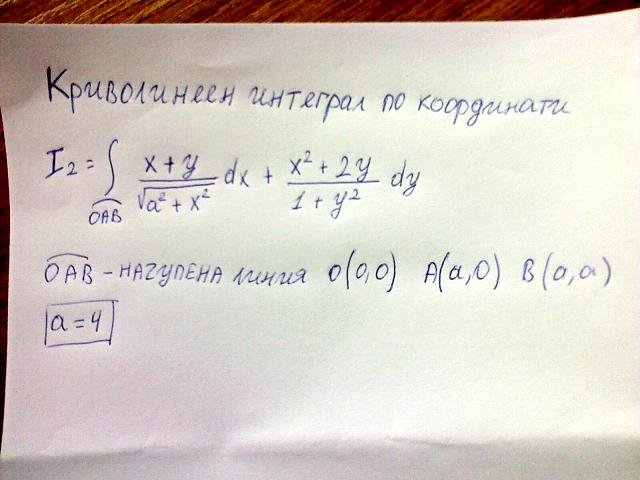 Криволинеен интеграл по координати
I₂ = ∫_OAB (x + y)/√(a² + x²) dx + (x² + 2y)/(1 + y²) dy
OAB - НАЧУПЕНА линия O(0,0) A(a,0) B(a,a)
a = 4